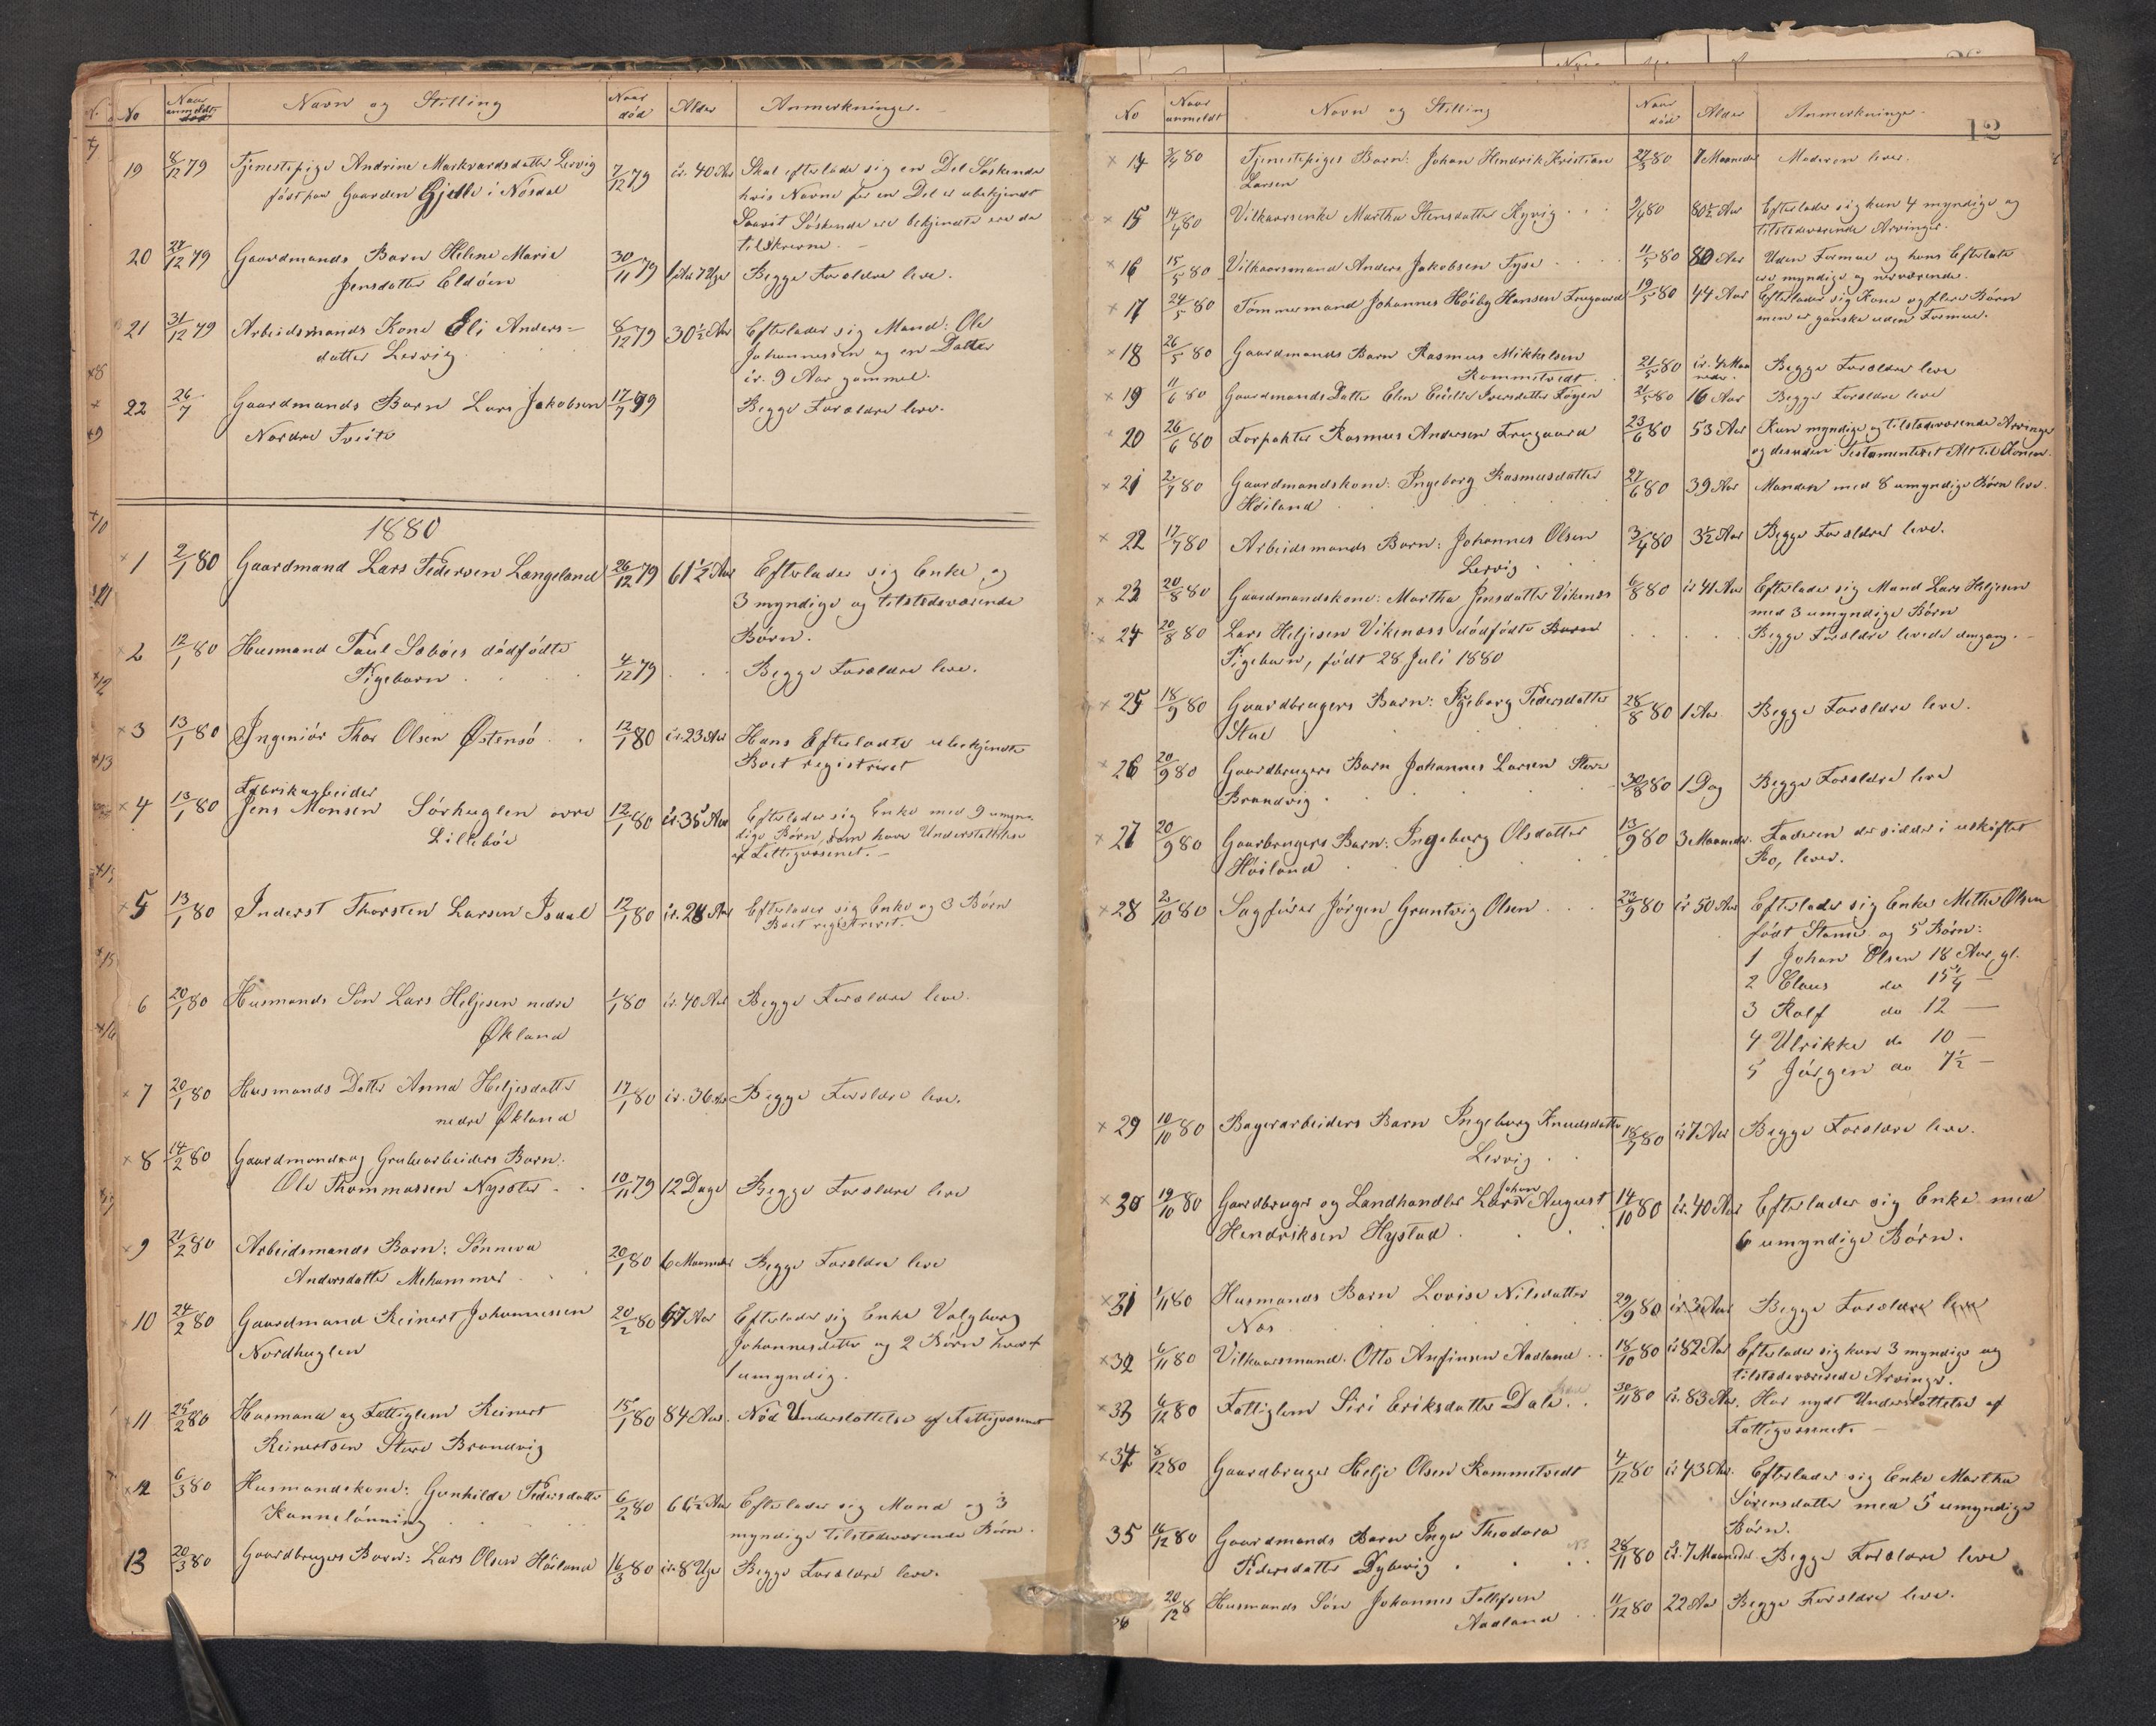 No Naar anmeldt død Navn og Stilling Naar død Alder Anmerkninger.
19 8/12 79 Tjenestepige Andrine Markvardsdatter Lervig 7/12 79 ir. 40 Aar Skal efterlade sig en Del Søskende
født paa Gaarden Gjelle i Nøsdal hvis Navne for en Del er ubekjendt
Saavit Søskende ere bekjendte ere de
tilskrevne. —
20 27/12 79 Gaardmands Barn Helene Marie
Jensdatter Eldøen 30/11 79 1 Aar 7 Uger Begge Forældre leve.
21 31/12 79 Arbeidsmands Kone Eli Anders=
datter Lervig 8/12 79 30½ Aar Efterlader sig Mand: Ole
Johannessen og en Datter
ir. 9 Aar gammel.
22 26/7 Gaardmands Barn Lars Jakobsen 17/7 79 Begge Forældre leve.
Nordre Tveite
1880
×1 2/1 80 Gaardmand Lars Pedersen Langeland 26/12 79 61½ Aar Efterlader sig Enke og
3 myndige og tilstedeværende
Børn.
×2 12/1 80 Husmand Paul Sæbøes dødfødte
Pigebarn 4/12 79 Begge Forældre leve.
×3 13/1 80 Ingeniør Thor Olsen Østensø 12/1 80 ir. 23 Aar Hans Efterladte ubekjendte
Boet registreret
Fabrikarbeider
×4 13/1 80 Jens Monsen Sørhuglen ovre 12/1 80 ir. 35 Aar Efterlader sig Enke med 9 umyn-
Lillebøe dige Børn, som have Understøttelse
af Fattigvæsenet. —
×5 13/1 80 Inderst Thorsten Larsen Isdal 12/1 80 ir. 28 Aar Efterlader sig Enke og 3 Børn
Boet registreret.
6 20/1 80 Husmands Søn Lars Heljesen nedre 1/1 80 ir. 40 Aar Begge Forældre leve.
Økland
×7 20/1 80 Husmands Datter Anna Heljesdatter 17/1 80 ir. 36 Aar Begge Forældre leve.
nedre Økland
×8 14/2 80 Gaardmands og Grubearbeiders Barn.
Ole Thommassen Nysæter 10/11 79 12 Dage Begge Forældre leve
×9 21/2 80 Arbeidsmands Barn: Sønneva
Andersdatter Mehammer 20/1 80 6 Maaneder Begge Forældre leve
×10 24/2 80 Gaardmand Reinert Johannessen 20/2 80 67 Aar Efterlader sig Enke Valgborg
Nordhuglen Johannesdatter og 2 Børn hvoraf
1 umyndig.
×11 25/2 80 Husmand og Fattiglem Reinert 15/1 80 84 Aar. Nød Understøttelse af Fattigvæsenet
Reinertsen Store Brandvig
×12 6/3 80 Husmandskone: Gunhilde Pedersdatter 6/2 80 66½ Aar Efterlader sig Mand og 3
Kannelønning myndige tilstedeværende Børn.
13 20/3 80 Gaardbrugers Barn: Lars Olsen Høiland 16/3 80 ir. 8 Uger Begge Forældre leve.
12
No Naar anmeldt Navn og Stilling Naar død Alder Anmerkninger
×14 3/4 80 Tjenestepiges Barn: Johan Hendrik Kristian 27/3 80 7 Maaneder Moderen lever.
Larsen
×15 14/4 80 Vilkaarsenke Martha Stensdatter Hyvig 9/4 80 80½ Aar Efterlader sig kun 4 myndige og
tilstedeværende Arvinger.
×16 15/5 80 Vilkaarsmand Anders Jakobsen Tyse 11/5 80 80 Aar Uden Formue og hans Efterlatte
ere myndige og nærværende.
×17 24/5 80 Tømmermand Johannes Høiby Hansen Fruegaard 19/5 80 44 Aar Efterlader sig Kone og flere Børn
men er ganske uden Formue.
×18 26/5 80 Gaardmands Barn Rasmus Mikkelsen
Rommetvedt 21/5 80 ir. 4 Maa neder. Begge Forældre leve
×19 11/6 80 Gaardmands Datter Elen Cecilie Iversdatter Føyen 21/5 80 16 Aar Begge Forældre leve
×20 26/6 80 Forpakter Rasmus Andersen Fruegaard 23/6 80 53 Aar Kun myndige og tilstedeværende Arvinger
og desuden Testamenteret Alt til Konen.
×21 2/7 80 Gaardmandskone: Ingeborg Rasmusdatter 27/6 80 39 Aar Manden med 8 umyndige Børn leve.
Høiland
×22 17/7 80 Arbeidsmands Barn: Johannes Olsen 3/4 80 3½ Aar Begge Forældre leve.
Lervig
×23 20/8 80 Gaardmandskone: Martha Jensdatter Vikenæs 6/8 80 ir 41 Aar Efterlader sig Mand Lars Heljesen
med 3 umyndige Børn
×24 20/8 80 Lars Heljesen Vikenæss dødfødte Barn Begge Forældre levede dengang. —
Pigebarn, født 28 Juli 1880
×25 18/9 80 Gaardbrugers Barn: Ingeborg Pedersdatter 28/8 80 1 Aar Begge Forældre leve.
Stue
×26 20/9 80 Gaardbrugers Barn Johannes Larsen Store
Brandvig 30/8 80 1 Dag Begge Forældre leve
×27 20/9 80 Gaarbrugers Barn: Ingeborg Olsdatter 13/9 80 3 Maaneder. Faderen der sidder i uskiftet
Høiland Bo, lever.
×28 2/10 80 Sagfører Jørgen Gruntvig Olsen 23/9 80 ir 50 Aar Efterlader sig Enke Methe Olsen
født Stamer og 5 Børn:
1 Johan Olsen 18 Aar gl.
2 Claus do 15¼ —
3 Rolf do 12 —
4 Ulrikke do 10 —
5 Jørgen do 7½ —
×29 10/10 80 Bagerarbeiders Barn Ingeborg Knudsdatter 18/7 80 ir 7 Aar Begge Forældre leve.
Lervig
Johan
×30 19/10 80 Gaardbruger og Landhandler Lars August 14/10 80 ir. 40 Aar Efterlader sig Enke med
Hendriksen Hystad 6 umyndige Børn.
×31 1/11 80 Husmands Barn Lovise Nilsdatter 29/9 80 ir 3 Aar Begge Forældre leve
Næs
×32 6/11 80 Vilkaarsmand. Otto Anfinsen Aadland 18/10 80 ir 82 Aar Efterlader sig kun 3 myndige og
tilstedeværende Arvinge.
×33 6/12 80 Fattiglem Siri Eriksdatter Dale 30/11 80 ir. 83 Aar. Har nydt Understøttelse af
Fattigvæsenet. —
×34 8/12 80 Gaardbruger Helje Olsen Rommetvedt 4/12 80 ir 43 Aar. Efterlader sig Enke Martha
Sørensdatter med 5 umyndige
Børn.
35 16/12 80 Gaardmands Barn Inger Theodora
Pedersdatter Dybevig 28/11 80 ir. 7 Maaneder. Begge Forældre leve
36 20/12 8 Husmands Søn Johannes Tollefsen
Aadland 11/12 80 22 Aar Begge Forældre leve.